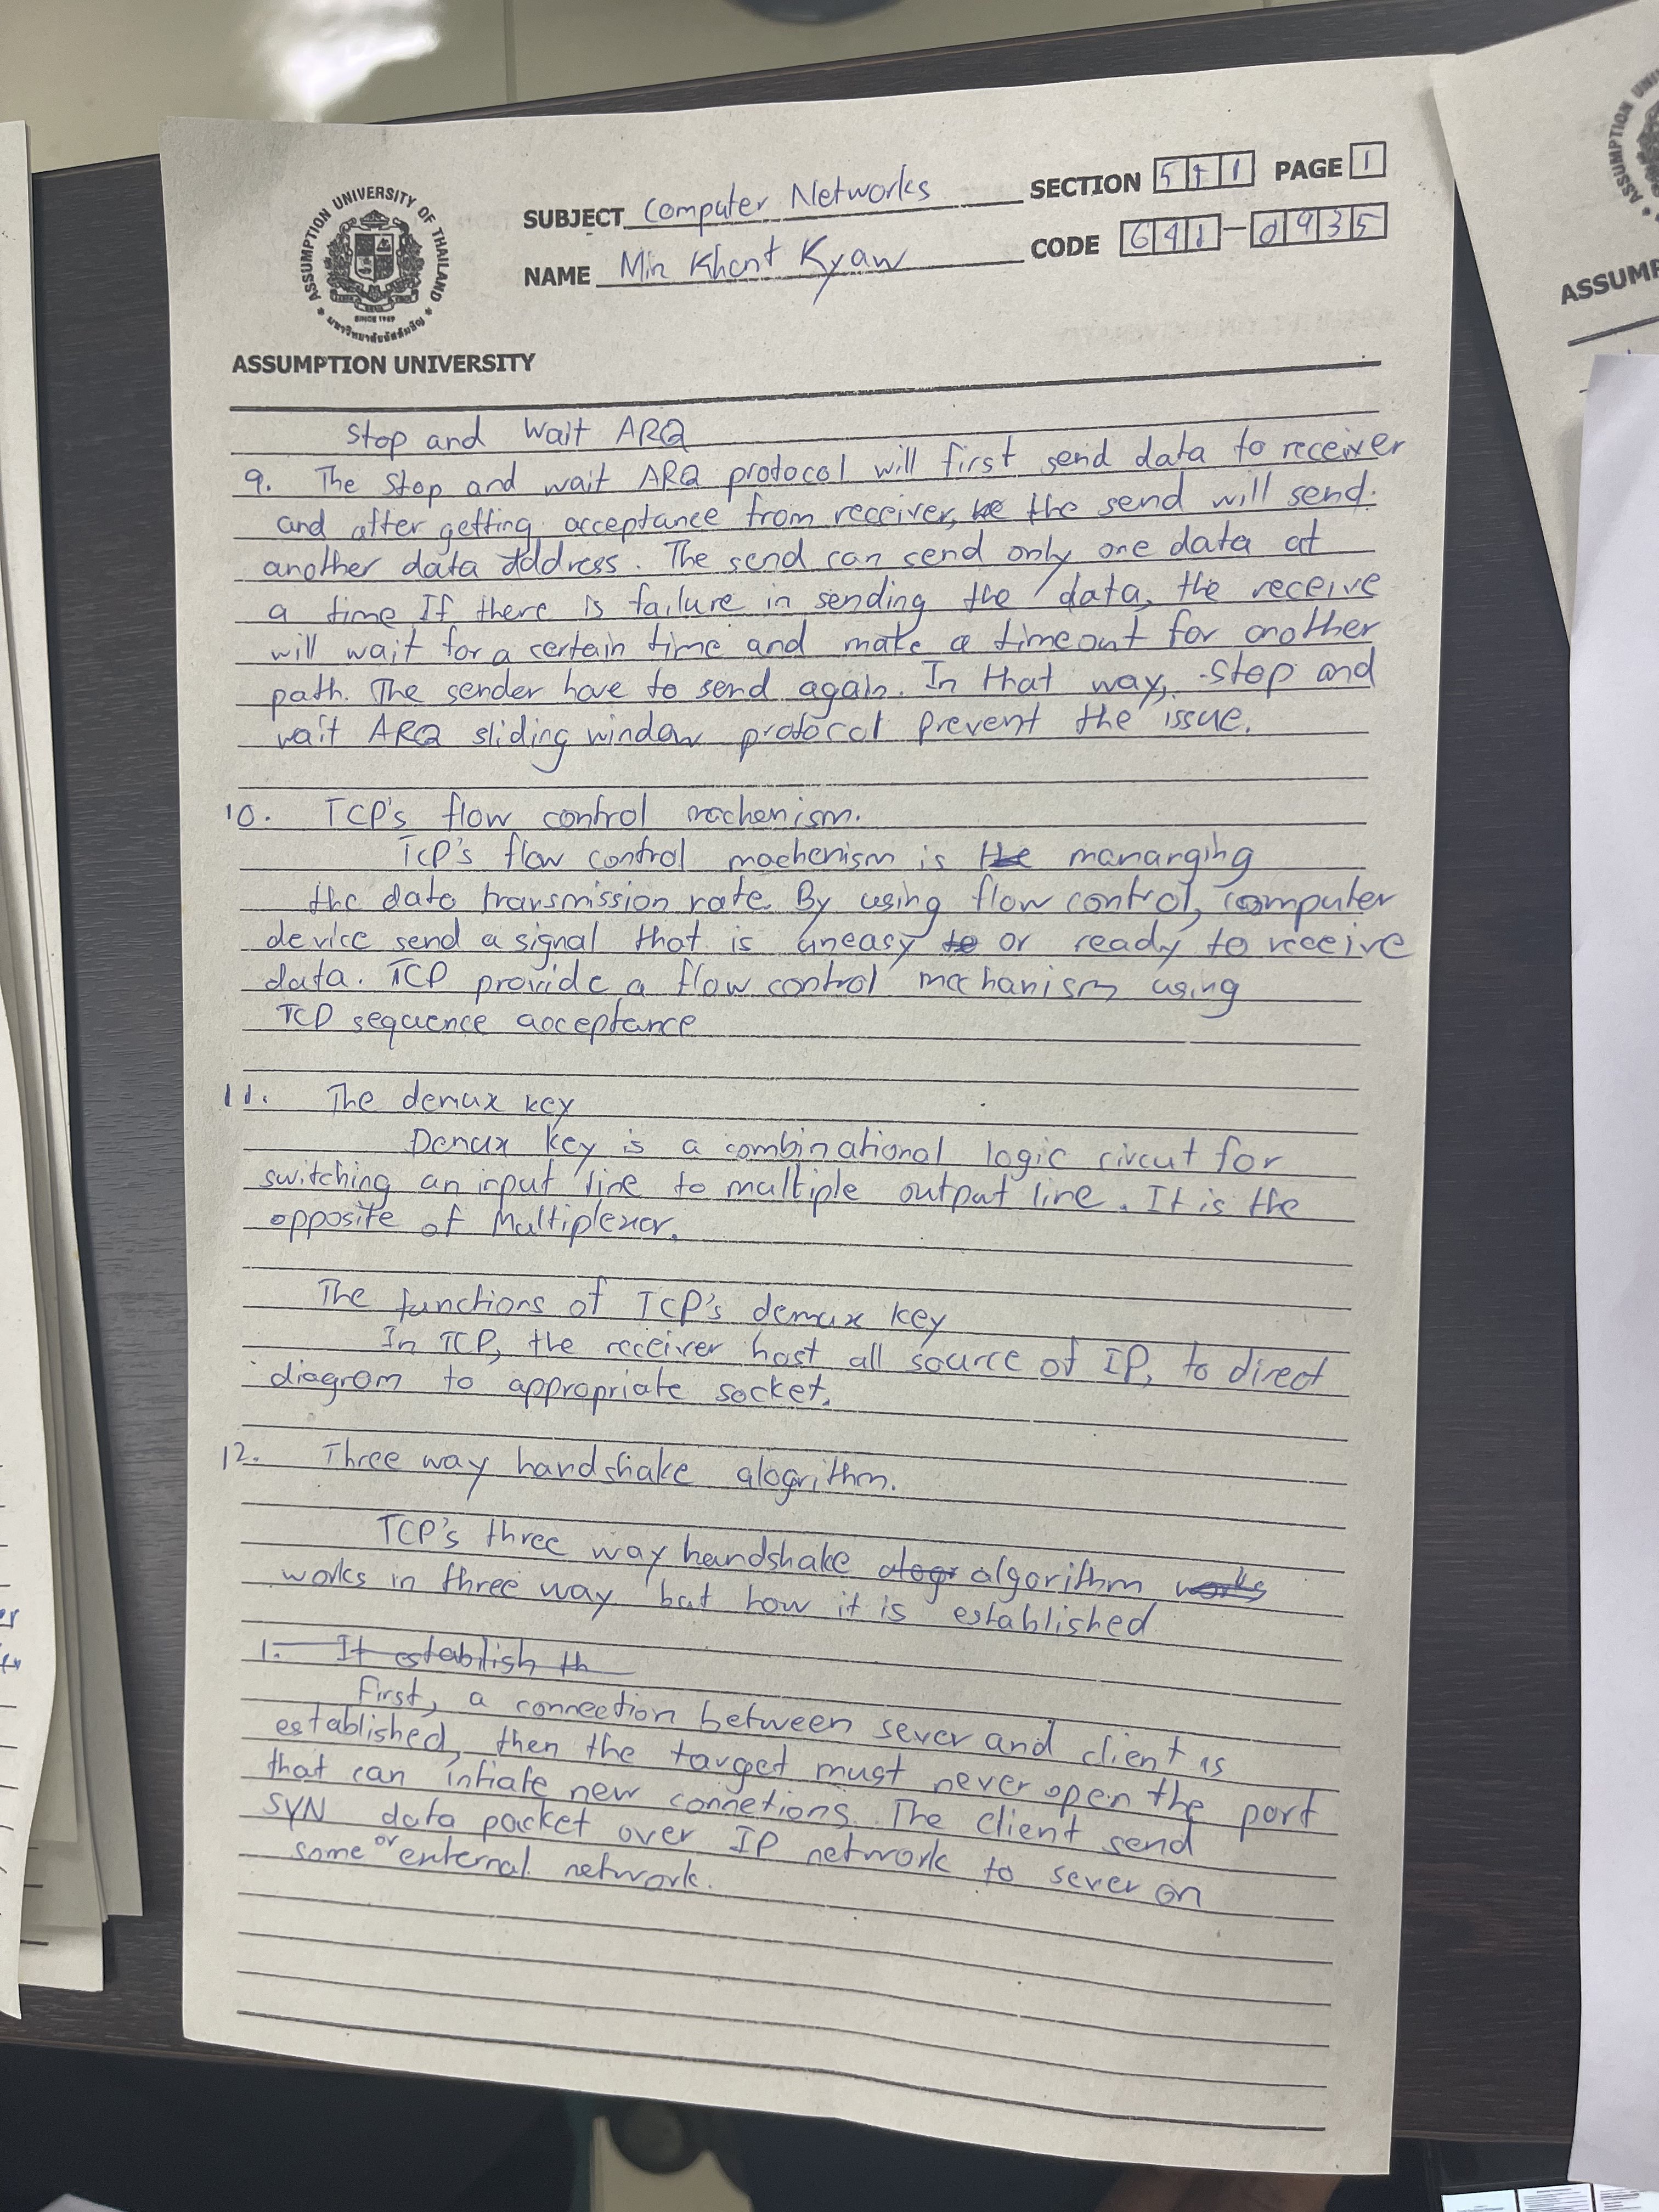 ASSUMPTION UNIVERSITY OF THAILAND
SINCE 1969
มหาวิทยาลัยอัสสัมชัญ
ASSUMPTION UNIVERSITY
SUBJECT Computer Networks SECTION 541 PAGE 1
NAME Min Khant Kyaw CODE 641-0935
Stop and Wait ARQ
9. The Stop and wait ARQ protocol will first send data to receiver
and after getting acceptance from receiver, he the send will send
another data address. The send can send only one data at
a time If there is failure in sending the data, the receive
will wait for a certain time and make a timeout for another
path. The sender have to send again. In that way, Stop and
wait ARQ sliding window protocol prevent the issue.
10. TCP's flow control mechenism.
TCP's flow control machenism is the manarging
the data transmission rate. By using flow control, computer
device send a signal that is uneasy to or ready to receive
data. TCP provide a flow control mechanism using
TCP sequence acceptance
11. The demux key
Demux key is a combinational logic circut for
switching an input line to multiple output line. It is the
opposite of Multiplexer.
The functions of TCP's demux key
In TCP, the receiver host all source of IP, to direct
diagrom to appropriate socket.
12. Three way handshake alogrithm.
TCP's three way handshake alogr algorithm works
works in three way but how it is established
1. It establish th
First, a connection between sever and client is
established, then the target must never open the port
that can intiate new connetions. The client send
SYN data packet over IP network to sever on
some or external network.
ASSUMP